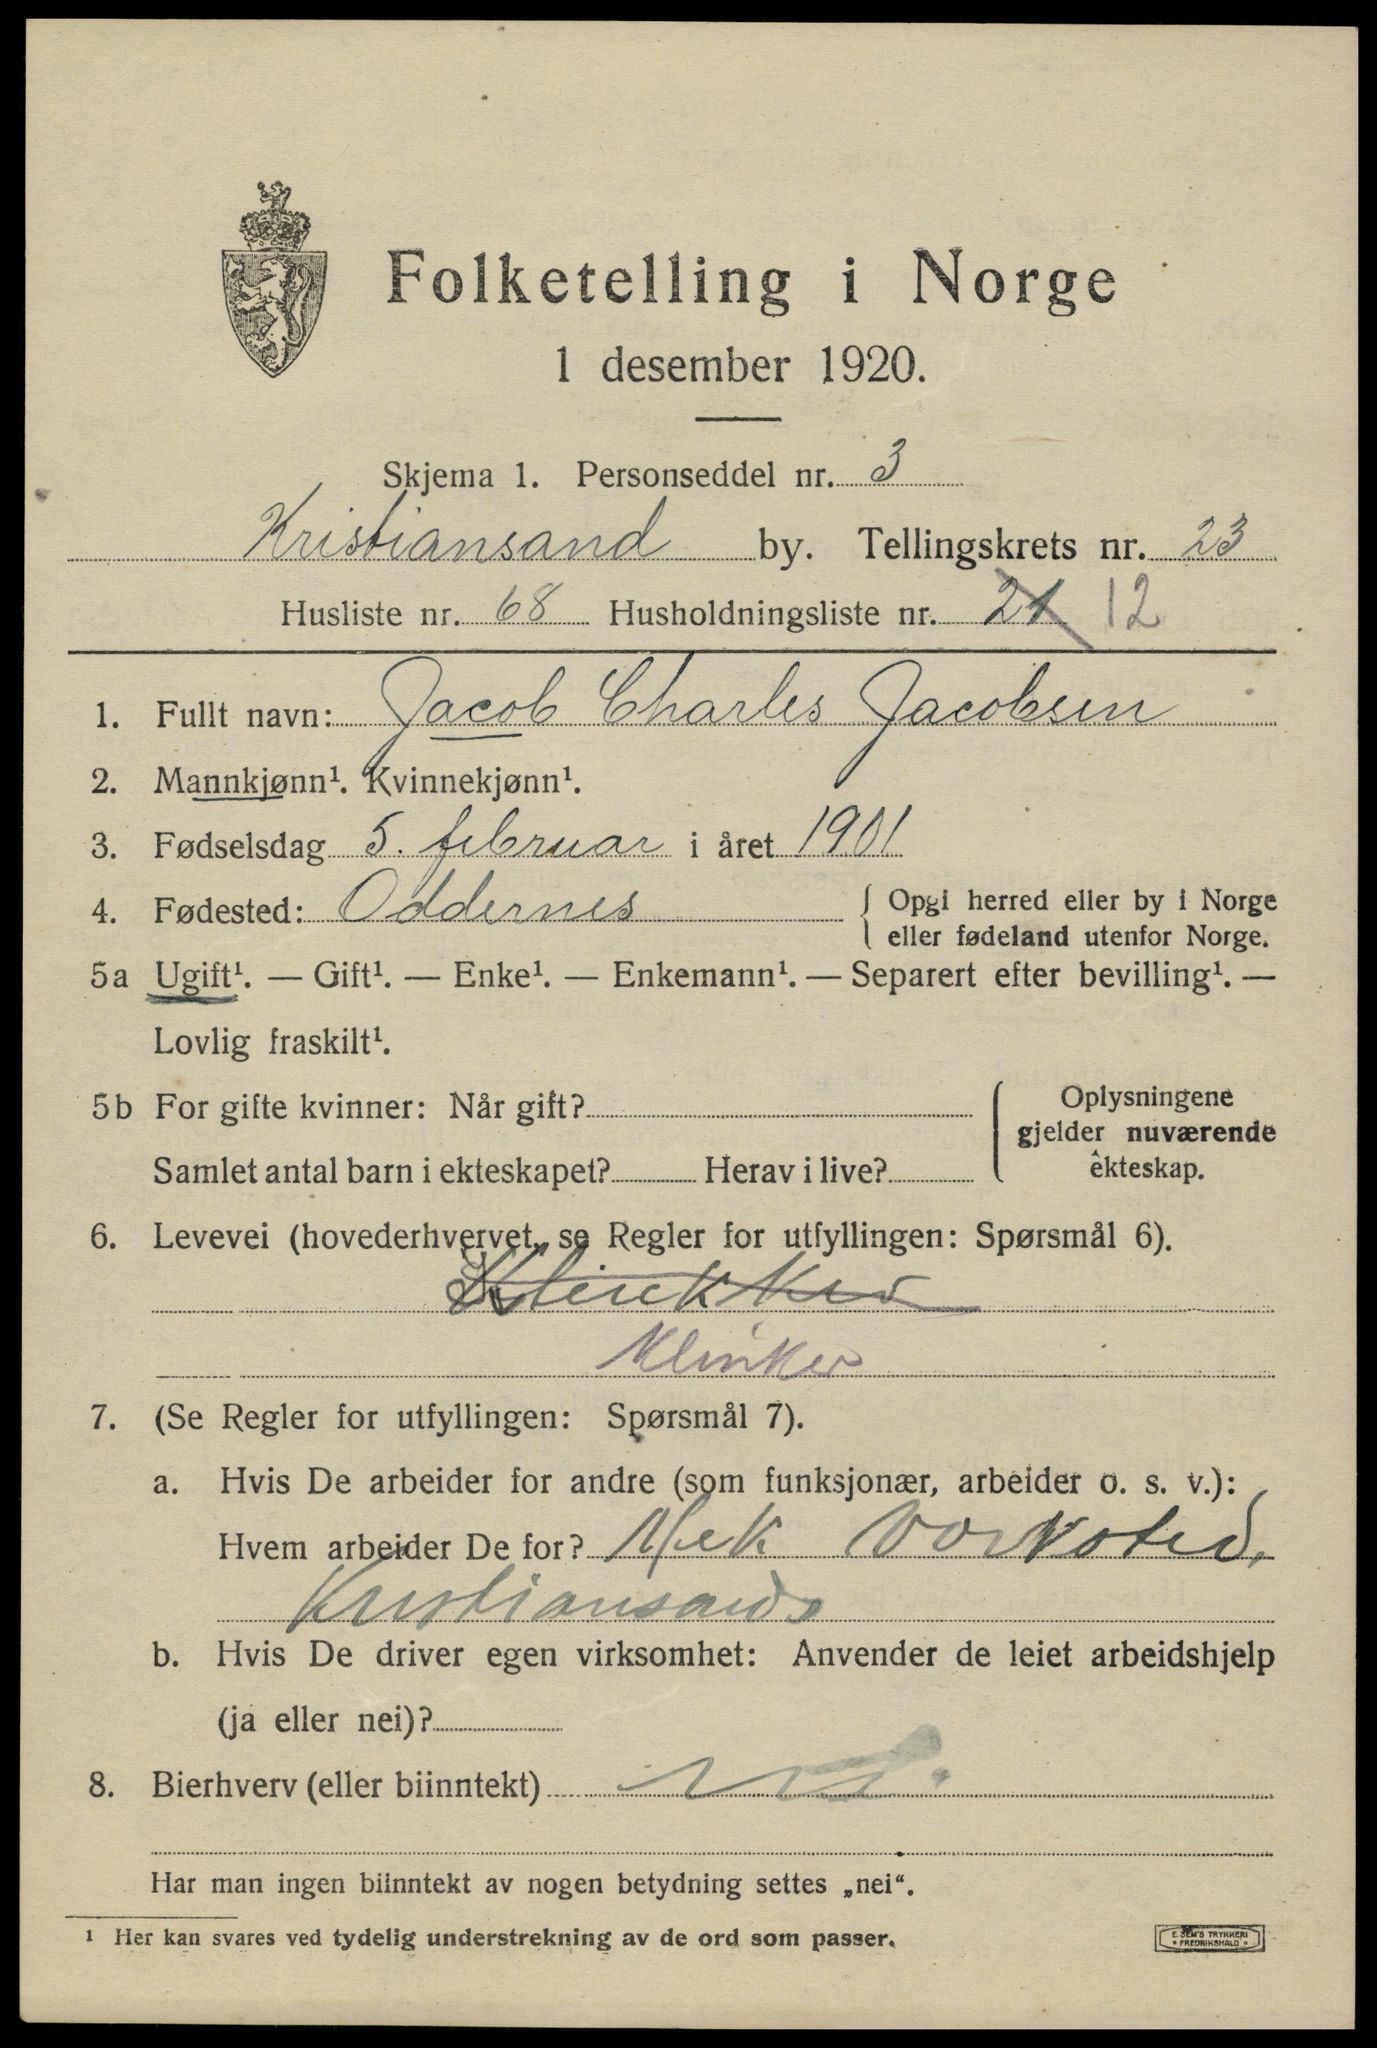 Folketelling i Norge
1 desember 1920.
Skjema 1. Personseddel nr. 3
Kristiansand by. Tellingskrets nr. 23
Husliste nr. 68 Husholdningsliste nr. 21 12
1. Fullt navn: Jacob Charles Jacobsen
2. Mannkjønn¹. Kvinnekjønn¹.
3. Fødselsdag 5. februar i året 1901
4. Fødested: Oddernes { Opgi herred eller by i Norge
eller fødeland utenfor Norge.
5a Ugift¹. — Gift¹. — Enke¹. — Enkemann¹. — Separert efter bevilling¹. —
Lovlig fraskilt¹.
5b For gifte kvinner: Når gift? { Oplysningene
gjelder nuværende
Samlet antal barn i ekteskapet? Herav i live? ekteskap.
6. Levevei (hovederhvervet, se Regler for utfyllingen: Spørsmål 6).
Klinker
7. (Se Regler for utfyllingen: Spørsmål 7).
a. Hvis De arbeider for andre (som funksjonær, arbeider o. s. v.):
Hvem arbeider De for? Mek
Kristiansands
b. Hvis De driver egen virksomhet: Anvender de leiet arbeidshjelp
(ja eller nei)?
8. Bierhverv (eller biinntekt) nei.
Har man ingen biinntekt av nogen betydning settes „nei“.
¹ Her kan svares ved tydelig understrekning av de ord som passer.
E. SEM'S TRYKKERI
• FREDRIKSHALD •